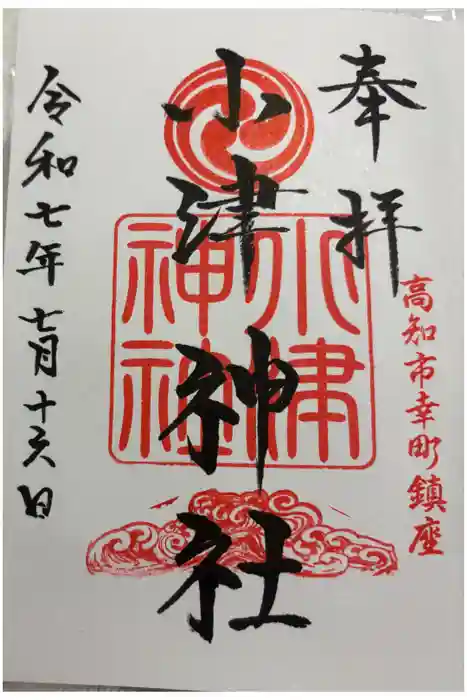 奉拝
高知市幸町鎮座
小津神社
小津神社
令和七年七月十六日